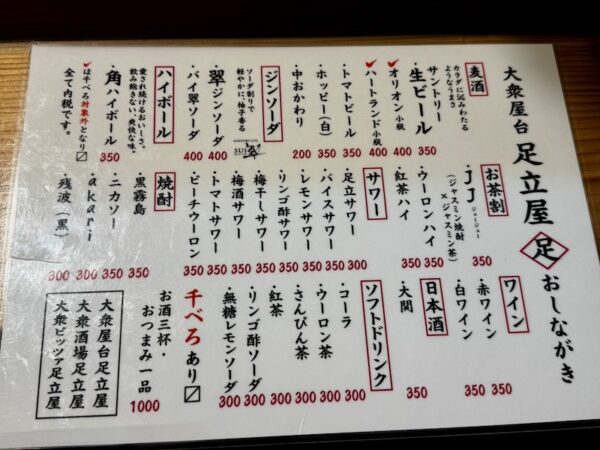 大衆屋台 足立屋 足 おしながき
麦酒
カラダに沁みわたる
ようなうまさ
・サントリー
生ビール 350
・オリオン小瓶 400
・ハートランド小瓶 400
・トマトビール 350
・ホッピー（白） 350
・中おかわり 200
ジンソーダ
ソーダ割りで
軽やかに柚子香る
SUI 翠
・翠ジンソーダ 400
・パイ翠ソーダ 400
ハイボール
愛され続けるおいしさ。
飲み飽きない、爽快な味。
・角ハイボール 350
は千べろ対象外となり〼
全て内税です。
お茶割
・JJ ジェージェー 350
（ジャスミン焼酎
×ジャスミン茶）
・ウーロンハイ 350
・紅茶ハイ 350
サワー
・足立サワー 300
・バイスサワー 350
・レモンサワー 300
・リンゴ酢サワー 300
・梅干しサワー 300
・梅酒サワー 350
・トマトサワー 350
・ピーチウーロン 350
焼酎
・黒霧島 350
・ニカソー 350
・akari 300
・残波（黒） 300
ワイン
・赤ワイン 350
・白ワイン 350
日本酒
・大関 350
ソフトドリンク
・コーラ 300
・ウーロン茶 300
・さんぴん茶 300
・紅茶 300
・リンゴ酢ソーダ 300
・無糖レモンソーダ 300
千べろあり〼
お酒三杯・
おつまみ一品 1000
大衆屋台足立屋
大衆酒場足立屋
大衆ピッツァ足立屋